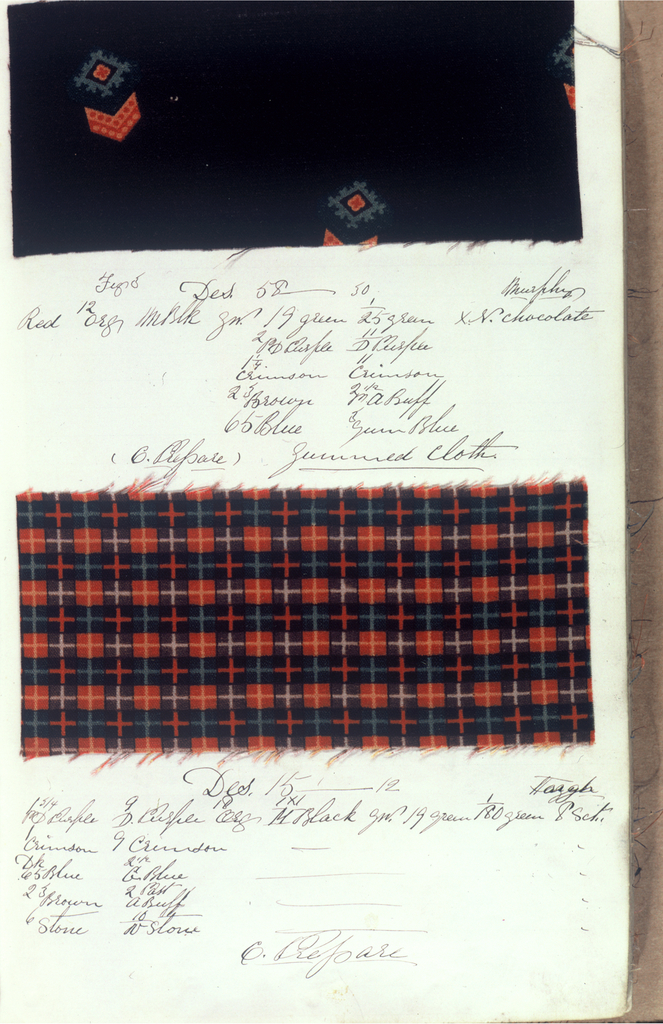 Des. 58 — 50 Murphy
Red 12 Org M Blk gw. 19 green 1/25 green X.N. chocolate
2 PD Purple 11 D Purple
Crimson 11 Crimson
2 3 Brown A Buff
65 Blue 3 Gum Blue
(C. Prepare) Gummed Cloth.
Des. 15 — 12 Haugh
Purple 9 D. Purple Org 1x1 M Black gw. 19 green 1/80 green 8 Sct.
1 Crimson 9 Crimson —
Dk
65 Blue C Blue
2 3 Brown 2 Past A Buff
6 Stone Stone
C. Prepare